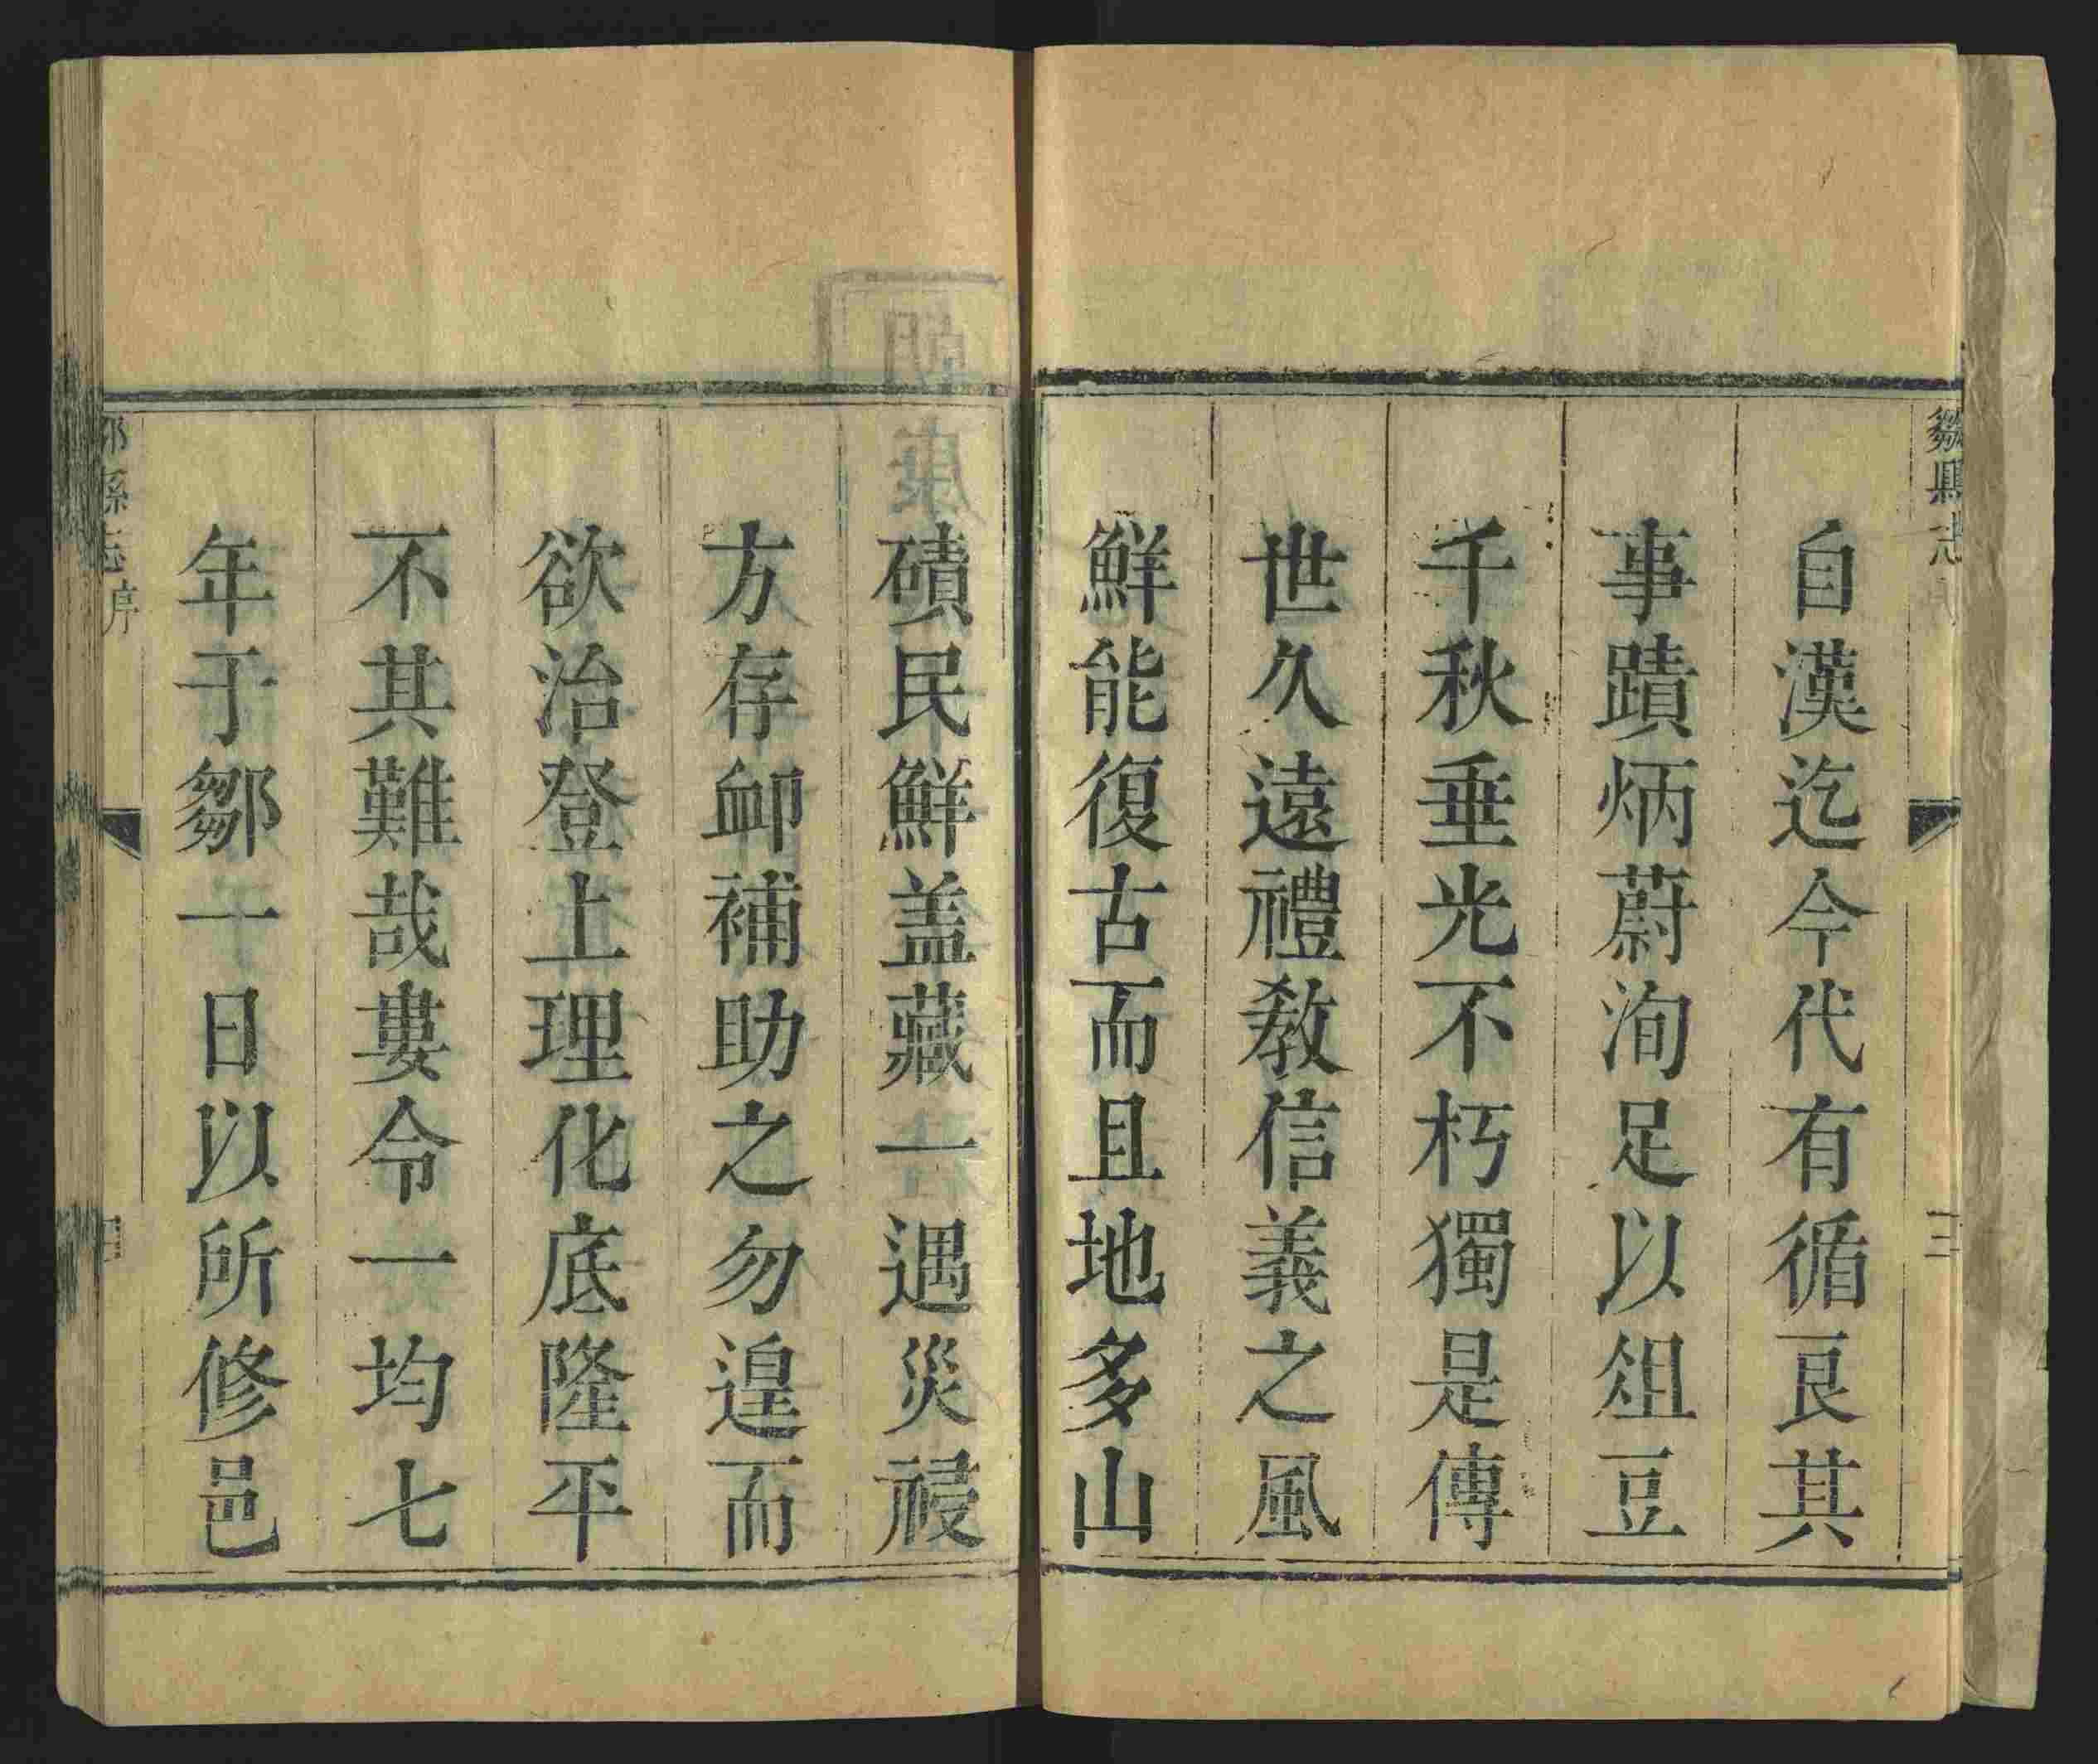 鄒縣志
三
自漢迄今代有循良其
事蹟炳蔚洵足以俎豆
千秋垂光不朽獨是傳
世久遠禮教信義之風
鮮能復古而且地多山
磧民鮮盖藏一遇災祲
方存衈補助之勿遑而
欲治登上理化底隆平
不其難哉婁令一均七
年于鄒一日以所修邑
鄒縣志序